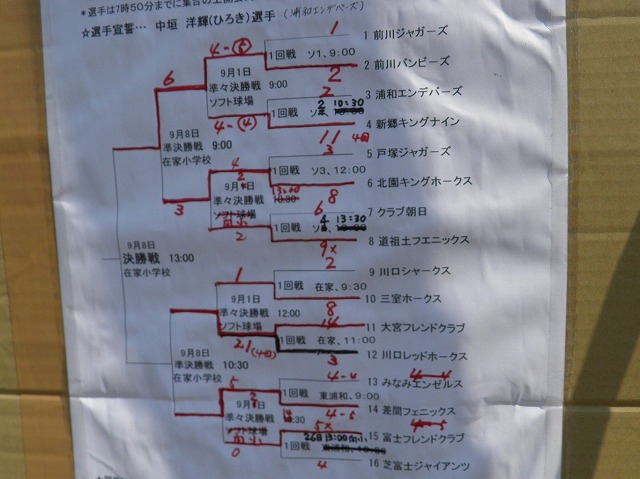 *選手は7時50分までに集合の上開会
☆選手宣誓… 中垣 洋輝(ひろき)選手 (浦和エンデバーズ)
1
1 前川ジャガーズ
4-⑤
1回戦 ソ1, 9:00
2 前川バンビーズ
2
6
9月1日
準々決勝戦 9:00
ソフト球場
2
3 浦和エンデバーズ
1回戦 2 10:30
4-④
4 新郷キングナイン
11 4回
9月8日
準決勝戦 9:00
在家小学校
3
5 戸塚ジャガーズ
4
1回戦 ソ3, 12:00
2
6 北園キングホークス
8
9月
準々決勝戦 13:00
10:30
ソフト球場
3
6
7 クラブ朝日
1回戦 4 13:30
2
8 道祖土フエニックス
9×
9月8日
決勝戦 13:00
在家小学校
2
9 川口シャークス
1
1回戦 在家, 9:30
10 三室ホークス
8
9月1日
準々決勝戦 12:00
ソフト球場
11 大宮フレンドクラブ
1回戦 在家, 11:00
21(4回)
12 川口レッドホークス
3
9月8日
準決勝戦 10:30
在家小学校
4-4
13 みなみエンゼルス
5
1回戦 東浦和, 9:00
4-5
14 差間フェニックス
9月
準々決勝戦
ソフト球場
5×
15 富士フレンドクラブ
26日13:00
1回戦
0
4
16 芝富士ジャイアンツ